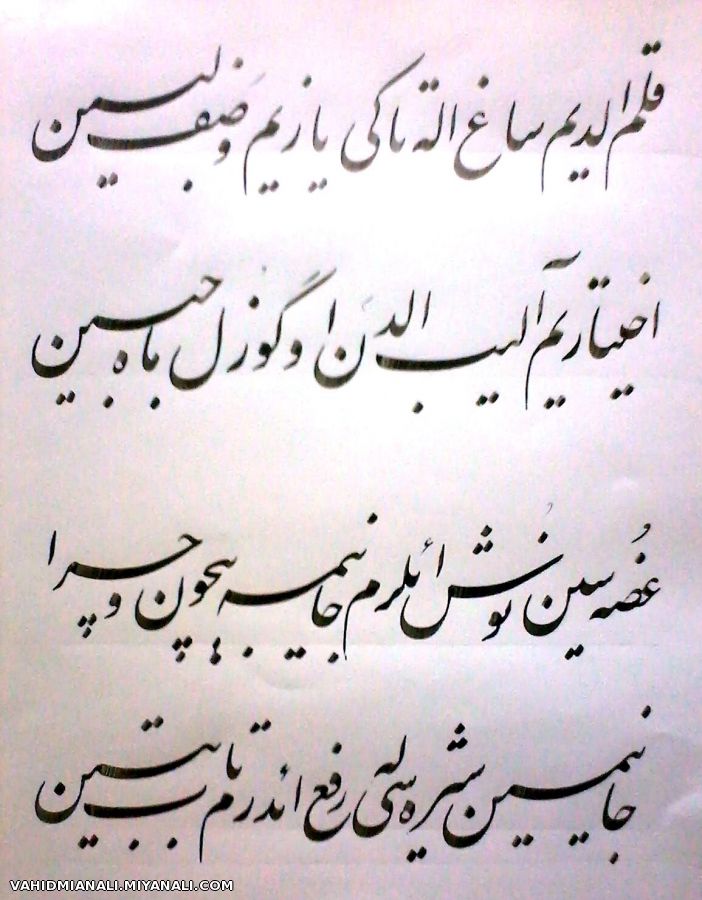 قلم الدیم ساغ الة تاکی یازیم وَصفیلیسین
اختیاریم آلیب الدَن او گوزَل باه جبین
غُصه سین نُوش ائلرم جانیمه بیچون و چرا
جانیمین شیره سی له رفع ائدرم تابیتین
VAHIDMIANALI.MIYANALI.COM